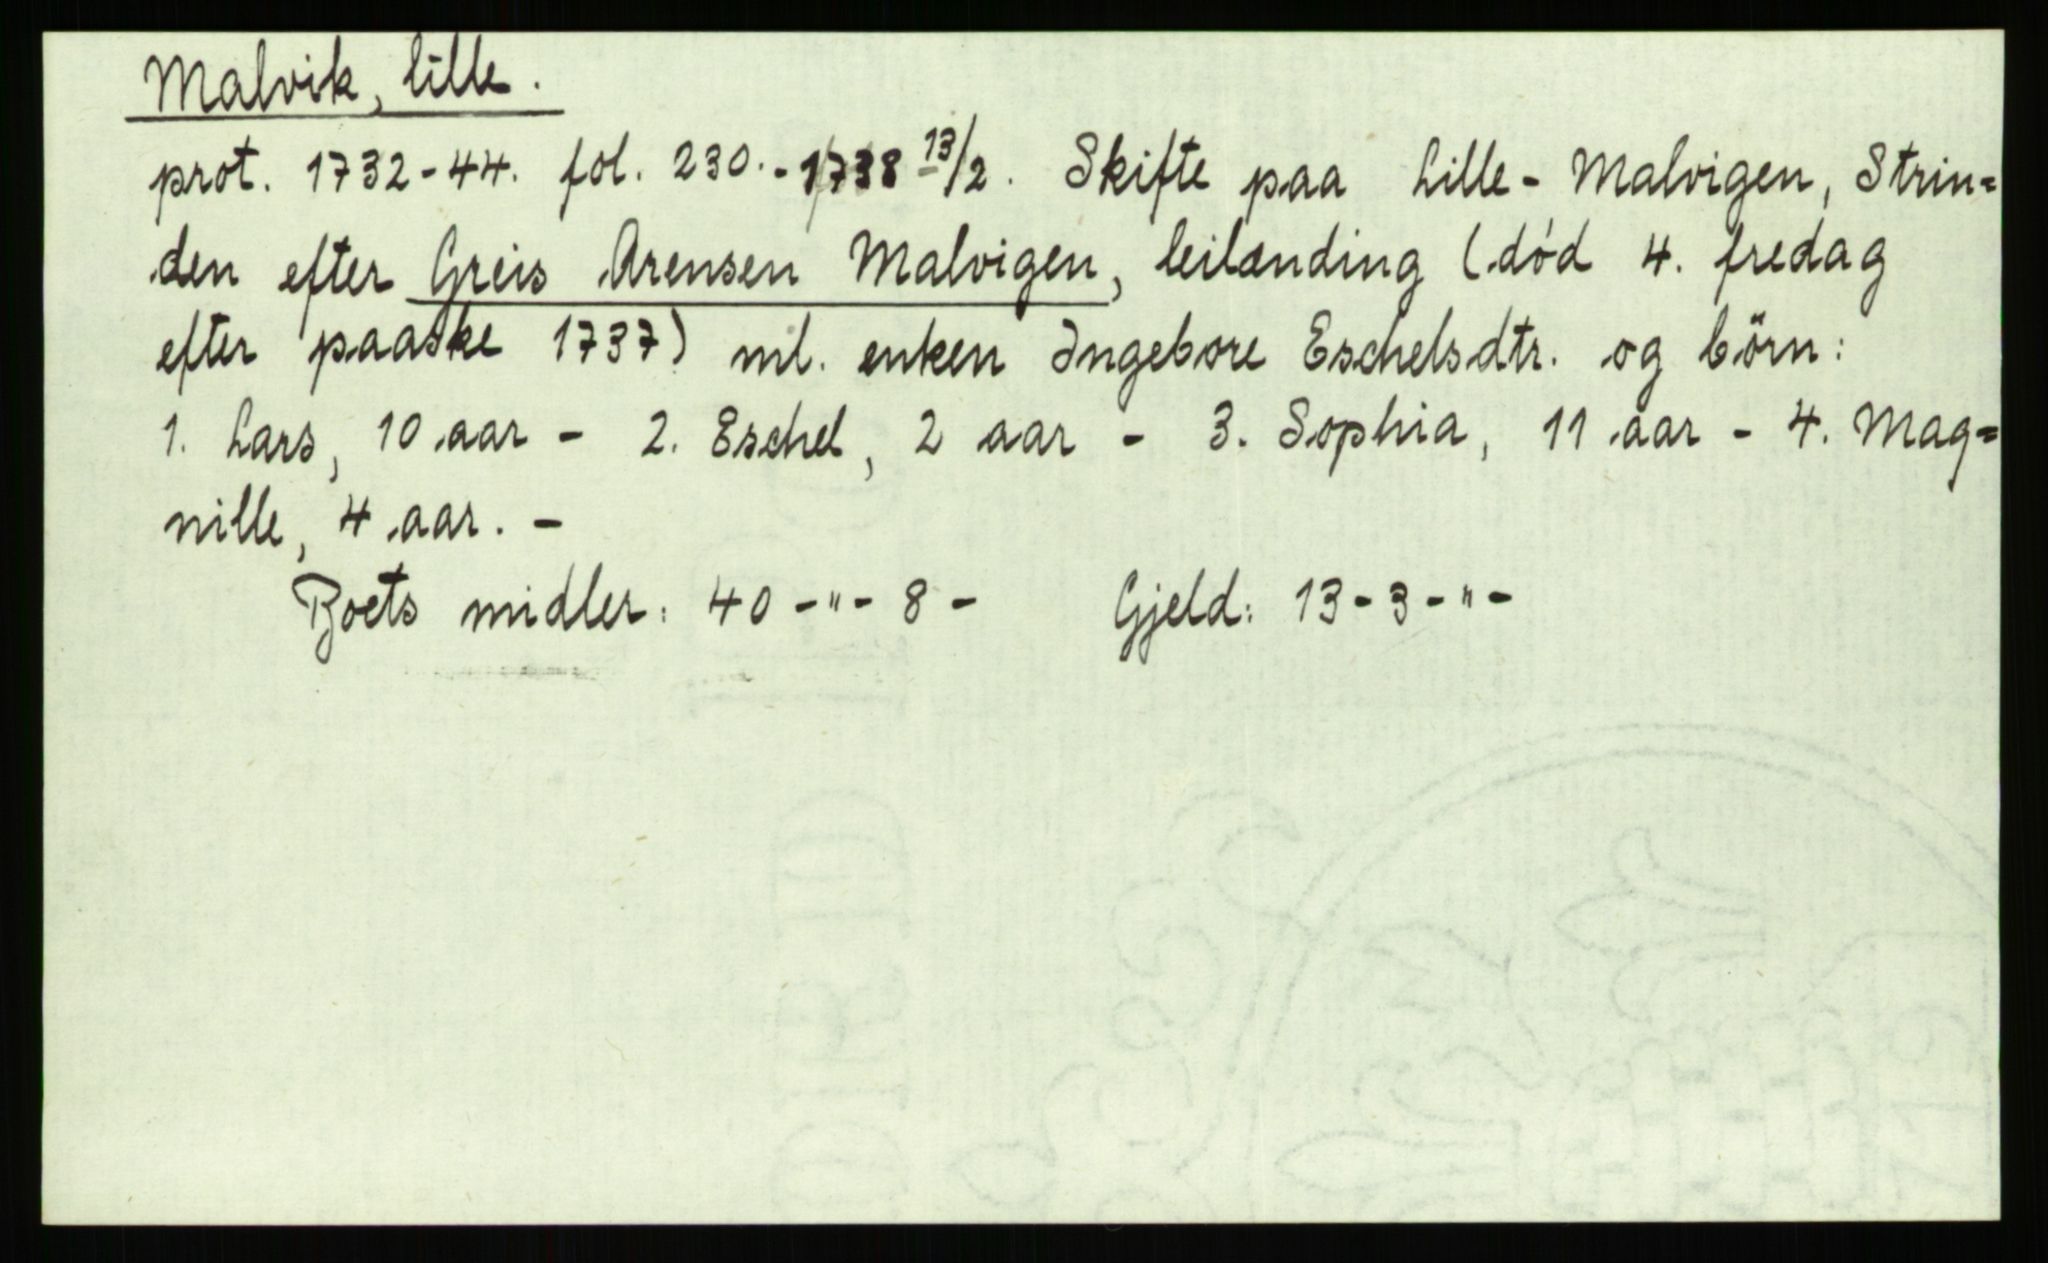 Malvik, lille.
prot. 1732-44. fol. 230.-1738 13/2. Skifte paa Lille-Malvigen, Strin=
den efter Greis Arensen Malvigen, leilænding (död 4. fredag
efter paaske 1737) ml. enken Ingebore Eschelsdtr. og börn:
1. Lars, 10 aar - 2. Eschel, 2 aar - 3. Sophia, 11 aar - 4. Mag=
nille, 4 aar. -
Boets midler: 40 -"- 8 - Gjeld: 13-3-"-